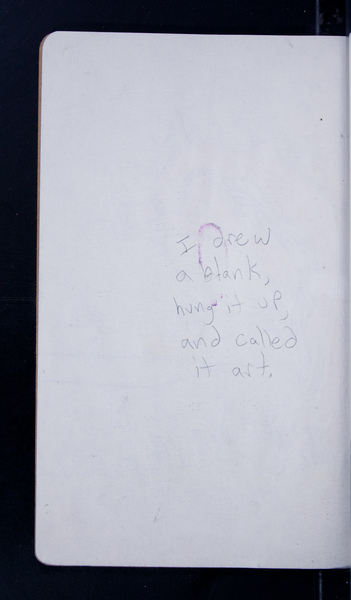 I drew
a blank,
hung it up,
and called
it art.